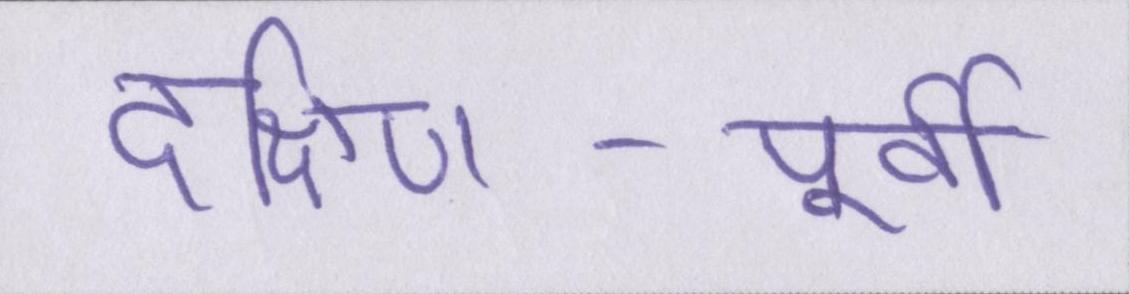 दक्षिण - पूर्वी